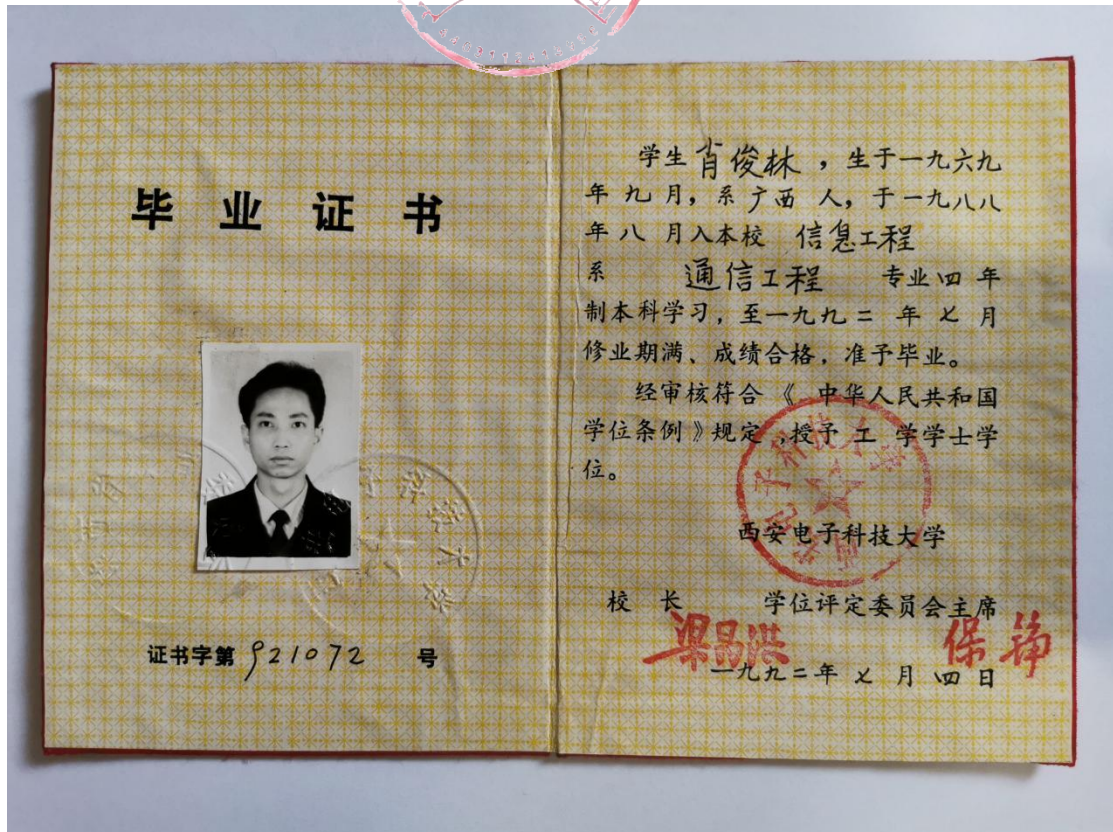 毕业证书
证书字第 921072 号
学生 肖俊林 ，生于一九六九
年 九 月，系 广西 人，于一九八八
年 八 月入本校 信息工程
系 通信工程 专业 四 年
制本科学习，至一九九二 年 七 月
修业期满、成绩合格，准予毕业。
经审核符合《 中华人民共和国
学位条例》规定，授予 工 学学士学
位。
西安电子科技大学
西安电子科技大学
校 长 学位评定委员会主席
梁昌洪 保铮
一九九二年 七 月 四 日